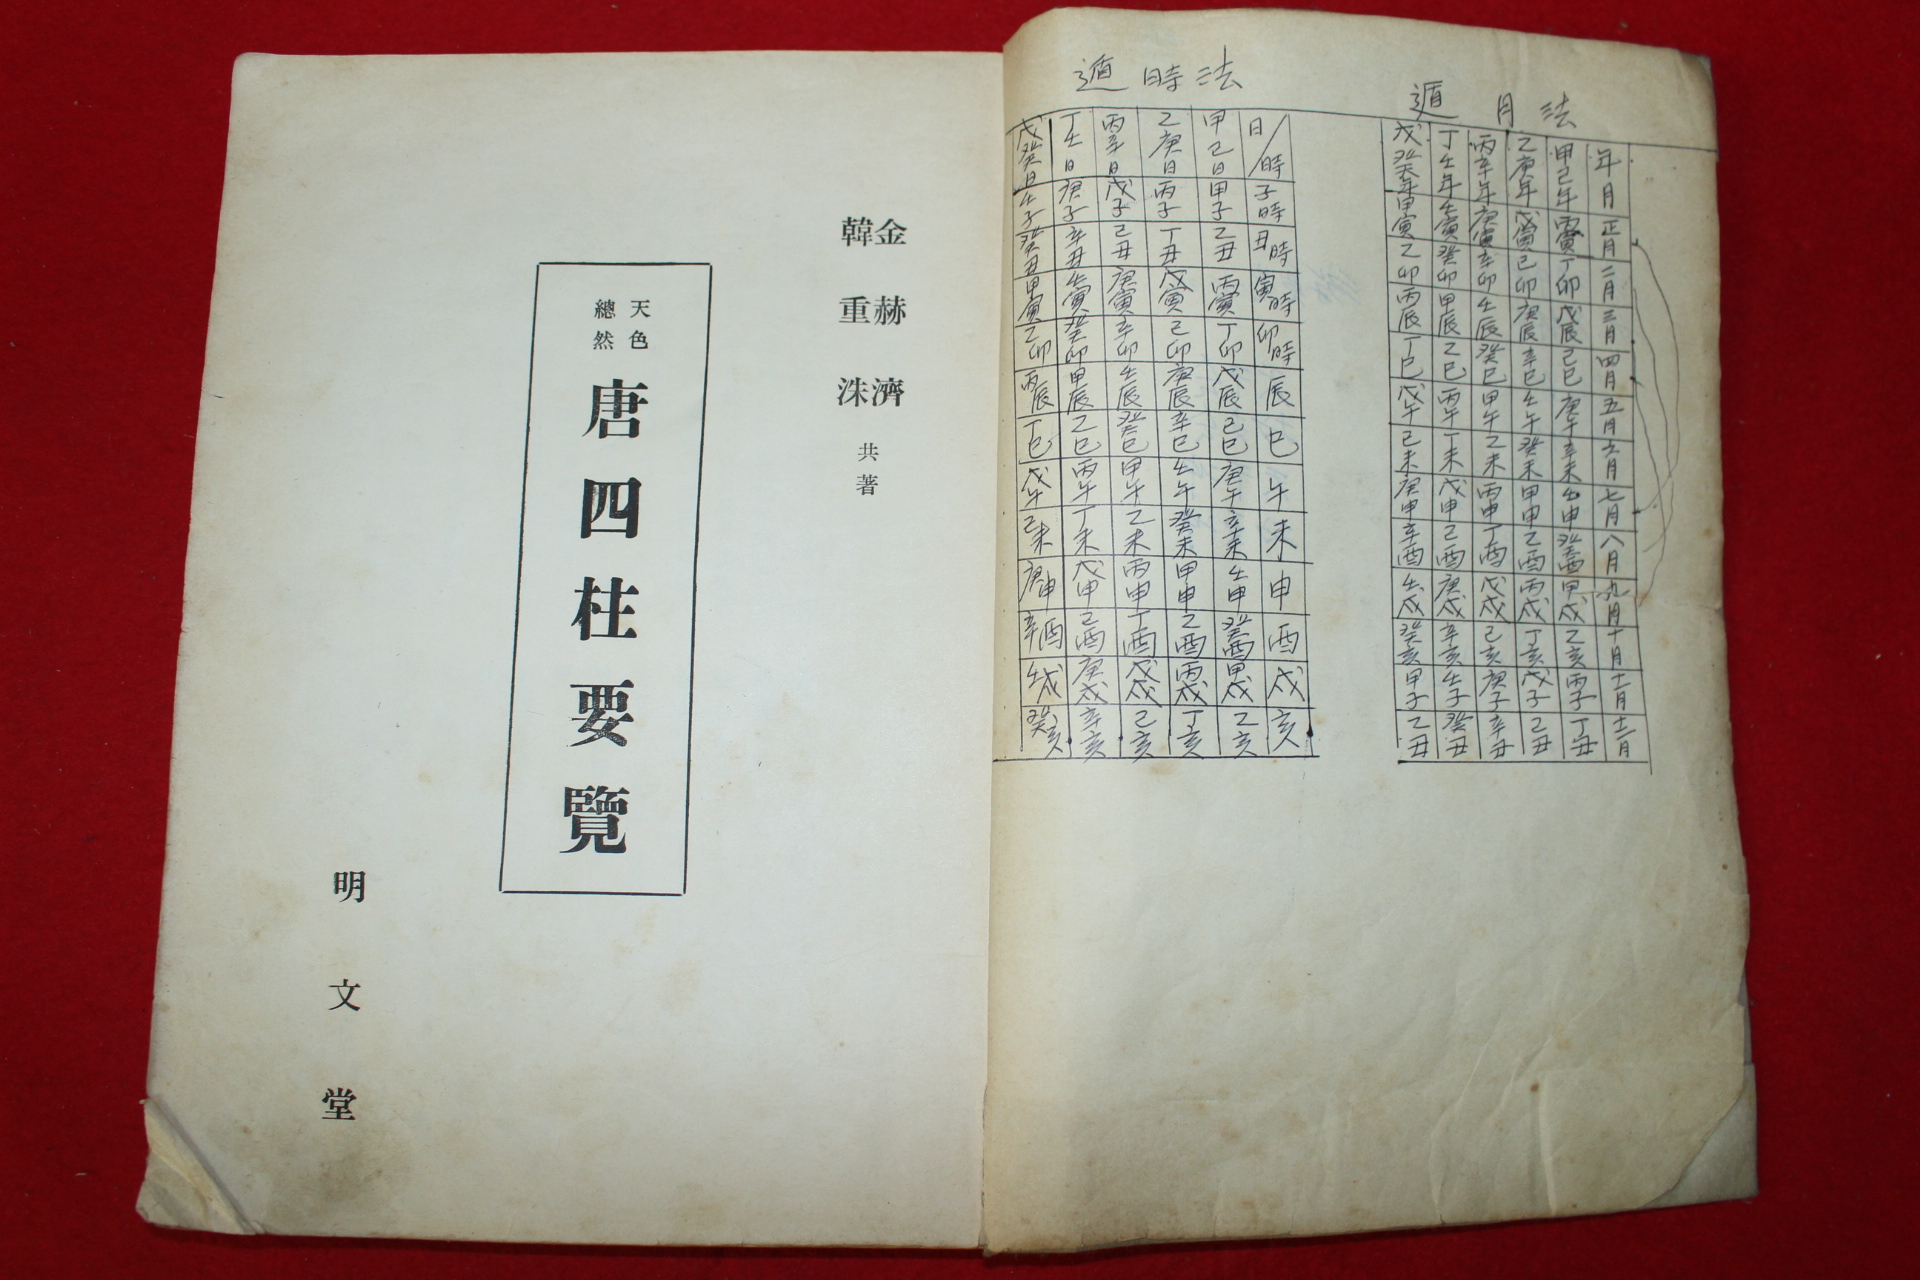 遁月法
年月 正月 二月 三月 四月 五月 六月 七月 八月 九月 十月 十一月 十二月
甲己年 丙寅 丁卯 戊辰 己巳 庚午 辛未 壬申 癸酉 甲戌 乙亥 丙子 丁丑
乙庚年 戊寅 己卯 庚辰 辛巳 壬午 癸未 甲申 乙酉 丙戌 丁亥 戊子 己丑
丙辛年 庚寅 辛卯 壬辰 癸巳 甲午 乙未 丙申 丁酉 戊戌 己亥 庚子 辛丑
丁壬年 壬寅 癸卯 甲辰 乙巳 丙午 丁未 戊申 己酉 庚戌 辛亥 壬子 癸丑
戊癸年 甲寅 乙卯 丙辰 丁巳 戊午 己未 庚申 辛酉 壬戌 癸亥 甲子 乙丑
遁時法
日/時 子時 丑時 寅時 卯時 辰 巳 午 未 申 酉 戌 亥
甲己日 甲子 乙丑 丙寅 丁卯 戊辰 己巳 庚午 辛未 壬申 癸酉 甲戌 乙亥
乙庚日 丙子 丁丑 戊寅 己卯 庚辰 辛巳 壬午 癸未 甲申 乙酉 丙戌 丁亥
丙辛日 戊子 己丑 庚寅 辛卯 壬辰 癸巳 甲午 乙未 丙申 丁酉 戊戌 己亥
丁壬日 庚子 辛丑 壬寅 癸卯 甲辰 乙巳 丙午 丁未 戊申 己酉 庚戌 辛亥
戊癸日 壬子 癸丑 甲寅 乙卯 丙辰 丁巳 戊午 己未 庚申 辛酉 壬戌 癸亥
金赫濟
韓重洙
共著
天色
總然
唐四柱要覽
明文堂